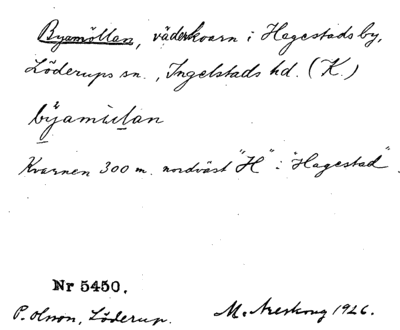 Byamöllan, väderkvarn i Hagestads by,
Löderups sn., Ingelstads hd. (K.)
býami̯lan
Kvarnen 300 m. nordväst "H" i "Hagestad".
Nr 5450.
P. Olsson, Löderup. M. Areskoug 1926.